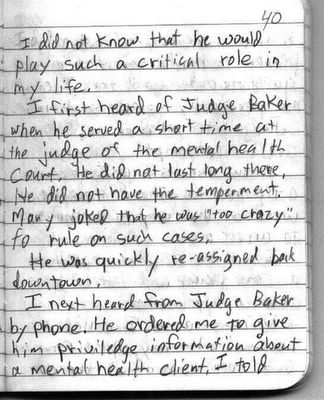 40
I did not know that he would
play such a critical role in
my life.
I first heard of Judge Baker
when he served a short time at
the judge of the mental health
Court. He did not last long there.
He did not have the temperment.
Many joked that he was "too crazy"
to rule on such cases.
He was quickly re-assigned back
downtown.
I next heard from Judge Baker
by phone. He ordered me to give
him priviledge information about
a mental health client. I told